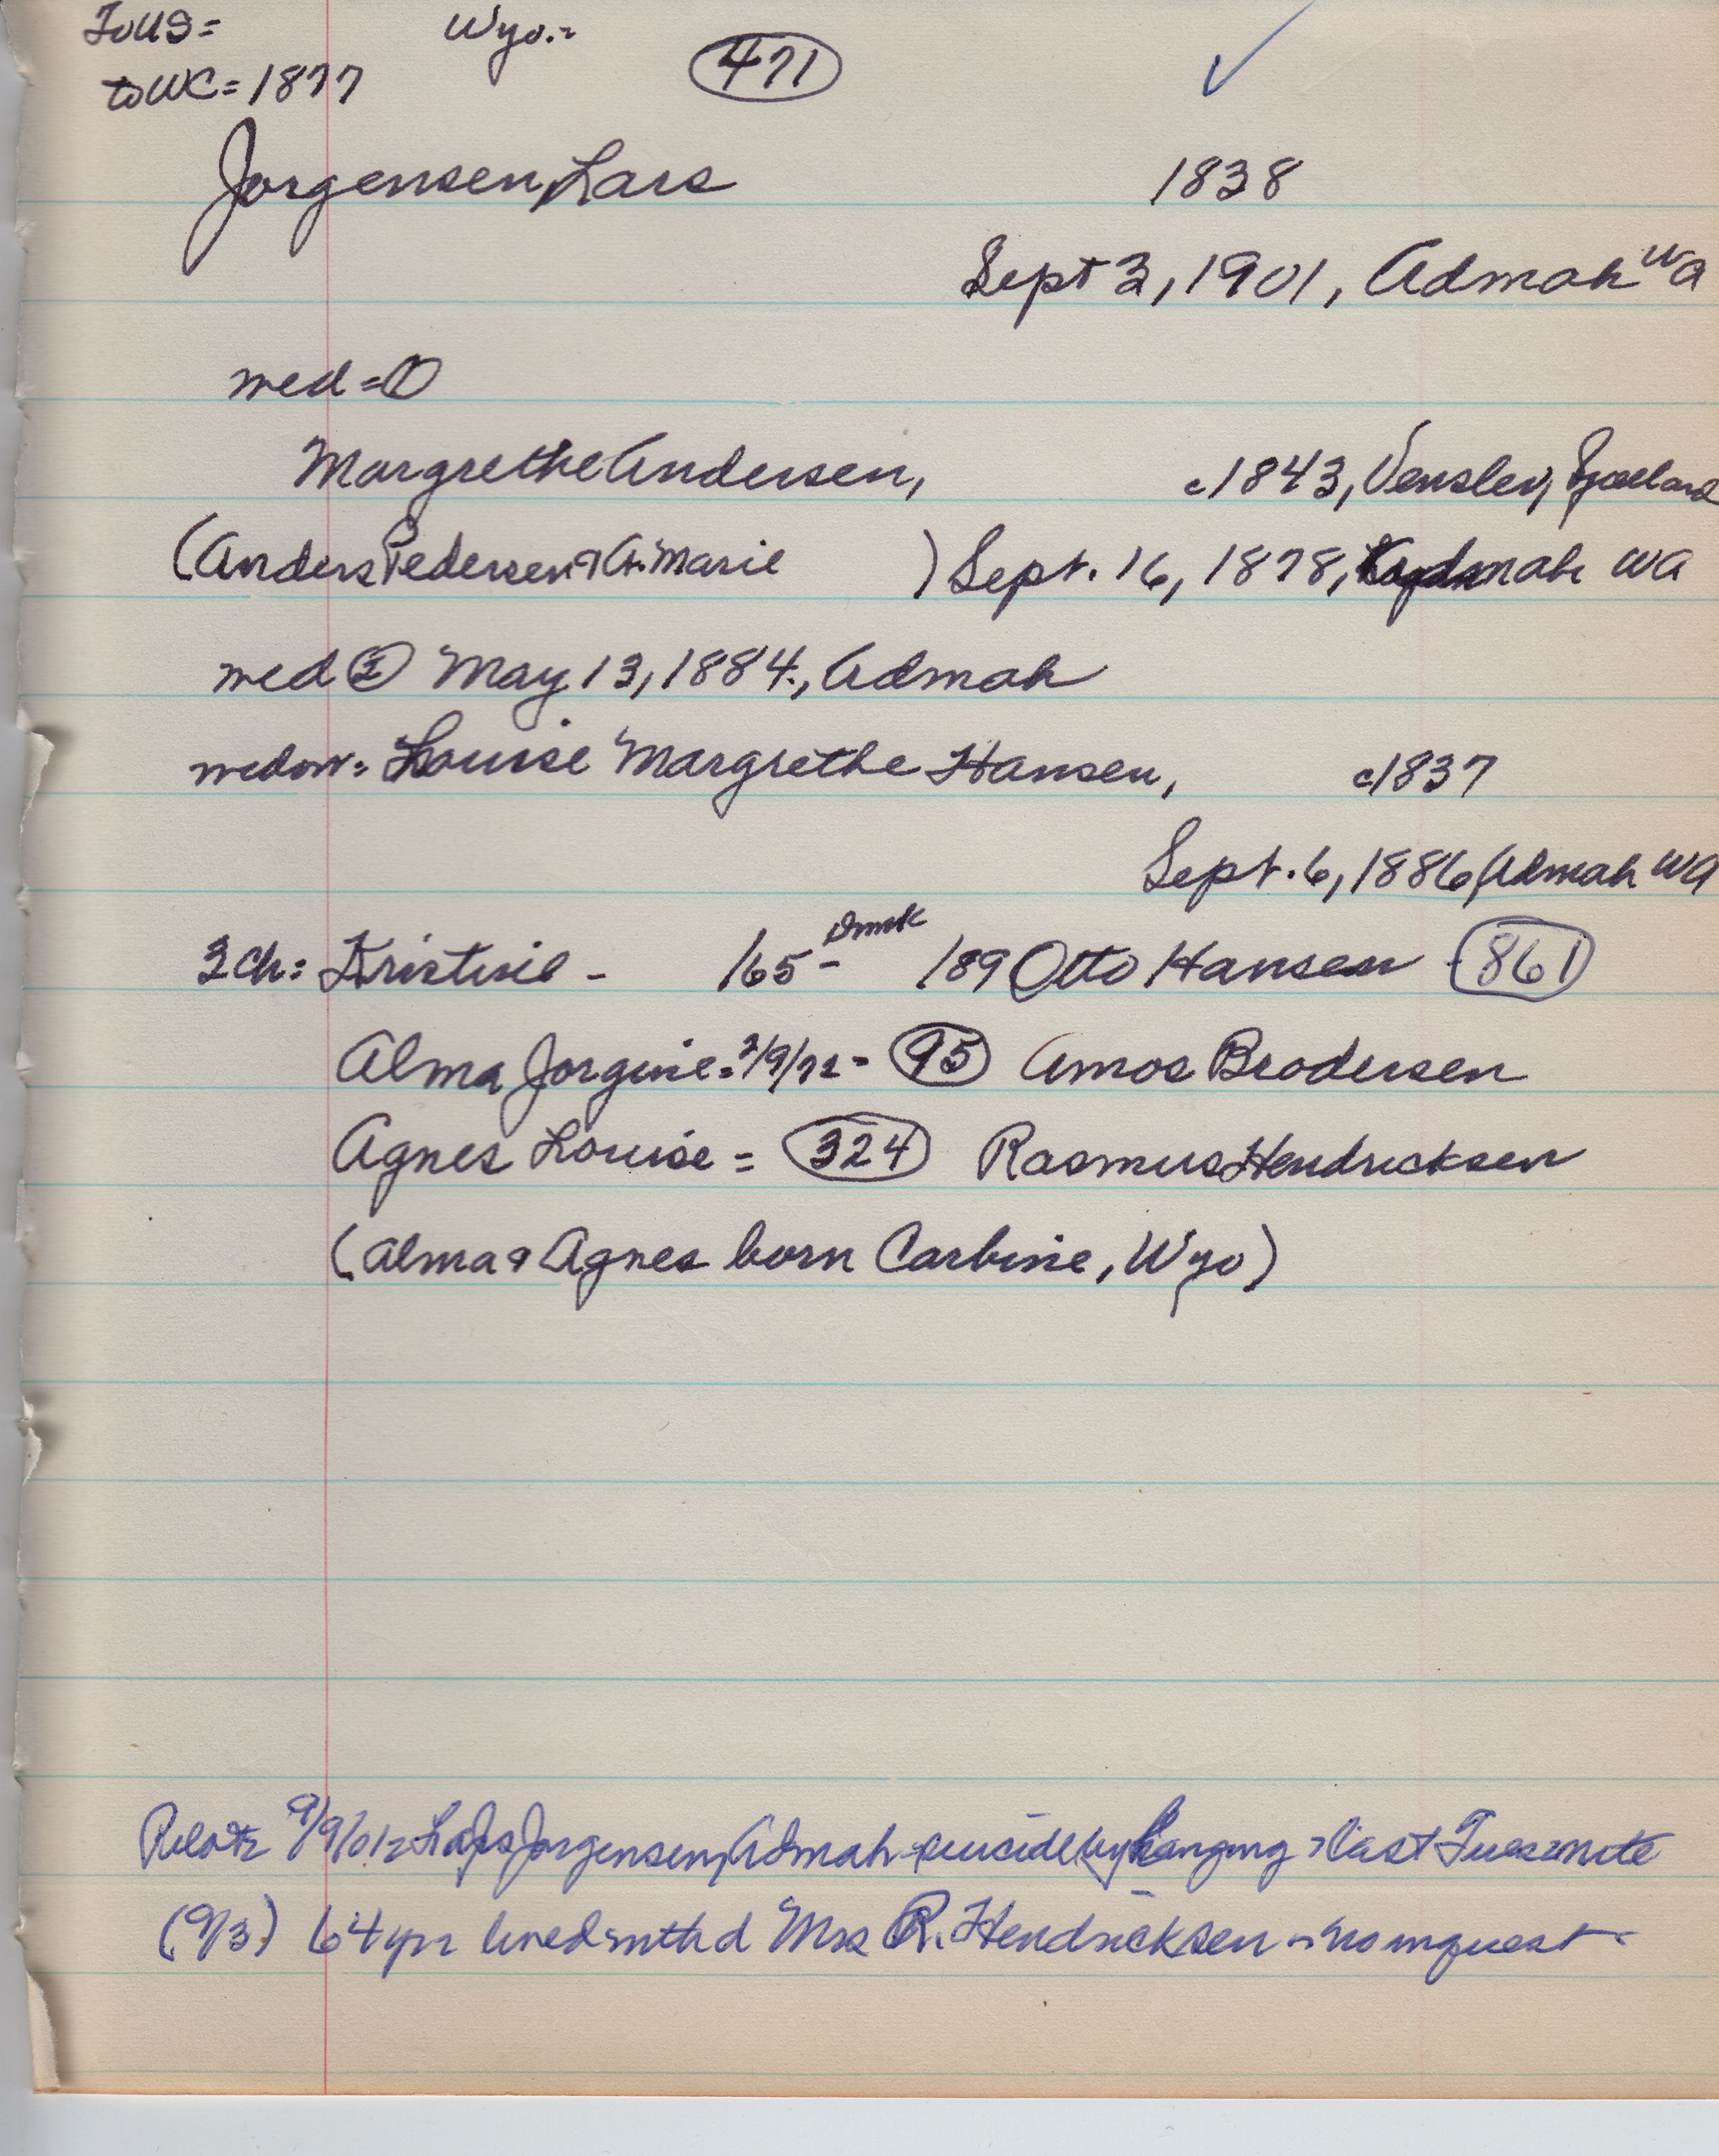 To US= Wyo.=
to WC= 1877 471
Jorgensen, Lars 1838
Sept 3, 1901, Admah WA
med = 1
Margrethe Andersen, c1843, Venslev, Sjaelland
(Anders Pedersen & A. Marie ) Sept. 16, 1878, Admah WA
med 2 May 13, 1884, Admah
medow= Louise Margrethe Hansen, c1837
Sept. 6, 1886, Admah WA
3 ch: Kristine - /65- Dmrk /89 Otto Hansen - 861
Alma Jorgine = 2/9/72 - 95 Amos Brodersen
Agnes Louise = 324 Rasmus Hendricksen
(Alma & Agnes born Carbine, Wyo)
9/9/01= Lars Jorgensen, Admah - suicide by hanging last Tues nite
(9/3) 64 yrs lived with d Mrs R. Hendricksen - no inquest -